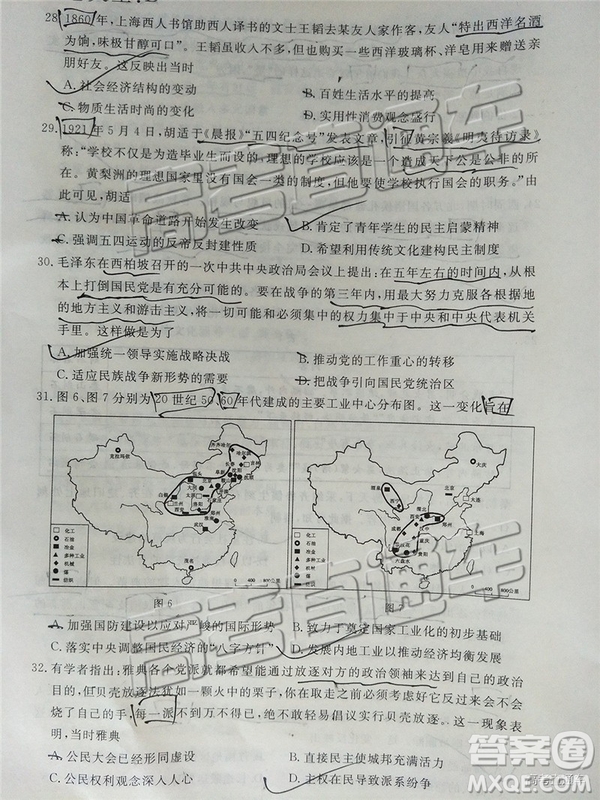 28. 1860年，上海西人书馆助西人译书的文士王韬去某友人家作客，友人“特出西洋名酒
为饷，味极甘醇可口”。王韬虽收入不多，但也购买一些西洋玻璃杯、洋皂用来赠送亲
朋好友。这反映出当时
A. 社会经济结构的变动
B. 百姓生活水平的提高
C. 物质生活时尚的变化
D. 实用性消费观念盛行
29. 1921年5月4日，胡适于《晨报》“五四纪念号”发表文章，引征黄宗羲《明夷待访录》
称：“学校不仅是为造毕业生而设的，理想的学校应该是一个造成天下公是公非的
所在。黄梨洲的理想国家里没有国会一类的制度，但他要使学校执行国会的职务。”由
此可见，胡适
A. 认为中国革命道路开始发生改变
B. 肯定了青年学生的民主启蒙精神
C. 强调五四运动的反帝反封建性质
D. 希望利用传统文化建构民主制度
30. 毛泽东在西柏坡召开的一次中共中央政治局会议上提出：在五年左右的时间内，从
根本上打倒国民党是有充分可能的。要在战争的第三年内，用最大努力克服各根据地
的地方主义和游击主义，将一切可能和必须集中的权力集中于中央和中央代表机关
手里。这样做是为了
A. 加强统一领导实施战略决战
B. 推动党的工作重心的转移
C. 适应民族战争新形势的需要
D. 把战争引向国民党统治区
31. 图6、图7分别为20世纪50、60年代建成的主要工业中心分布图。这一变化旨在
克拉玛依
齐齐哈尔
哈尔滨
长春
北京
大同
包头
白银
兰州
西安
洛阳
郑州
武汉
茂名
化工
石油
冶金
多种工业
机械
煤
纺织
0 400 800公里
图6
大庆
北京
大连
西宁
郑州
成都
重庆
贵阳
六盘水
化工
石油
冶金
多种工业
机械
煤
纺织
0 400 800公里
图7
A. 加强国防建设以应对严峻的国际形势
B. 致力于奠定国家工业化的初步基础
C. 落实中央调整国民经济的“八字方针”
D. 发展内地工业以推动经济均衡发展
32. 有学者指出：雅典各个党派就都希望能通过放逐对方的政治领袖来达到自己的政治
目的，但贝壳放逐法犹如一颗火中的栗子，你在取走之前必须考虑好自己会不会
烧了自己的手，每一派不到万不得已，都不会轻易倡议实行贝壳放逐。这一现象表
明，当时雅典
A. 公民大会已经形同虚设
B. 直接民主使城邦充满活力
C. 公民权利观念深入人心
D. 主权在民导致派系纷争
高考直通车
高考直通车
答案卷